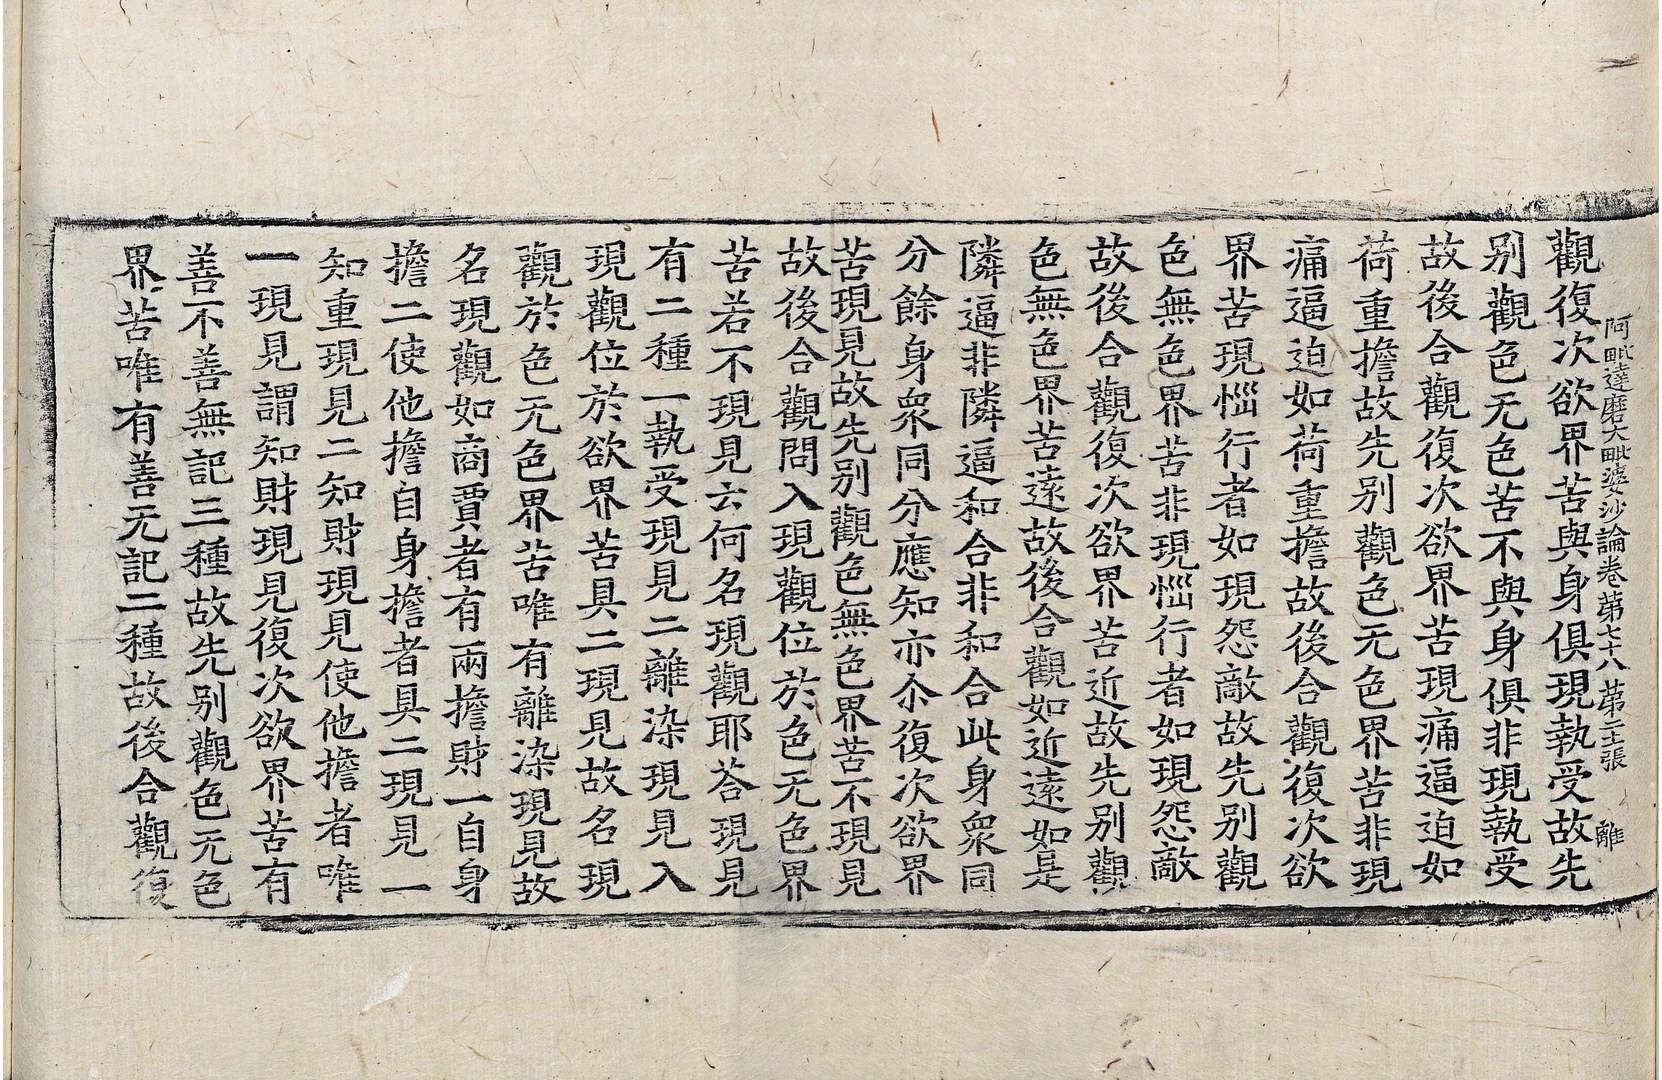 阿毗達磨大毗婆沙論卷苐七十八 苐二十張 離
觀復次欲界苦與身俱現執受故先
別觀色无色苦不與身俱非現執受
故後合觀復次欲界苦現痛逼迫如
荷重擔故先別觀色无色界苦非現
痛逼迫如荷重擔故後合觀復次欲
界苦現惱行者如現怨敵故先別觀
色無色界苦非現惱行者如現怨敵
故後合觀復次欲界苦近故先別觀
色無色界苦遠故後合觀如近遠如是
隣逼非隣逼和合非和合此身衆同
分餘身衆同分應知亦尒復次欲界
苦現見故先別觀色無色界苦不現見
故後合觀問入現觀位於色无色界
苦若不現見云何名現觀耶荅現見
有二種一執受現見二離染現見入
現觀位於欲界苦具二現見故名現
觀於色无色界苦唯有離染現見故
名現觀如商賈者有兩擔財一自身
擔二使他擔自身擔者具二現見一
知重現見二知財現見使他擔者唯
一現見謂知財現見復次欲界苦有
善不善無記三種故先別觀色无色
界苦唯有善无記二種故後合觀復